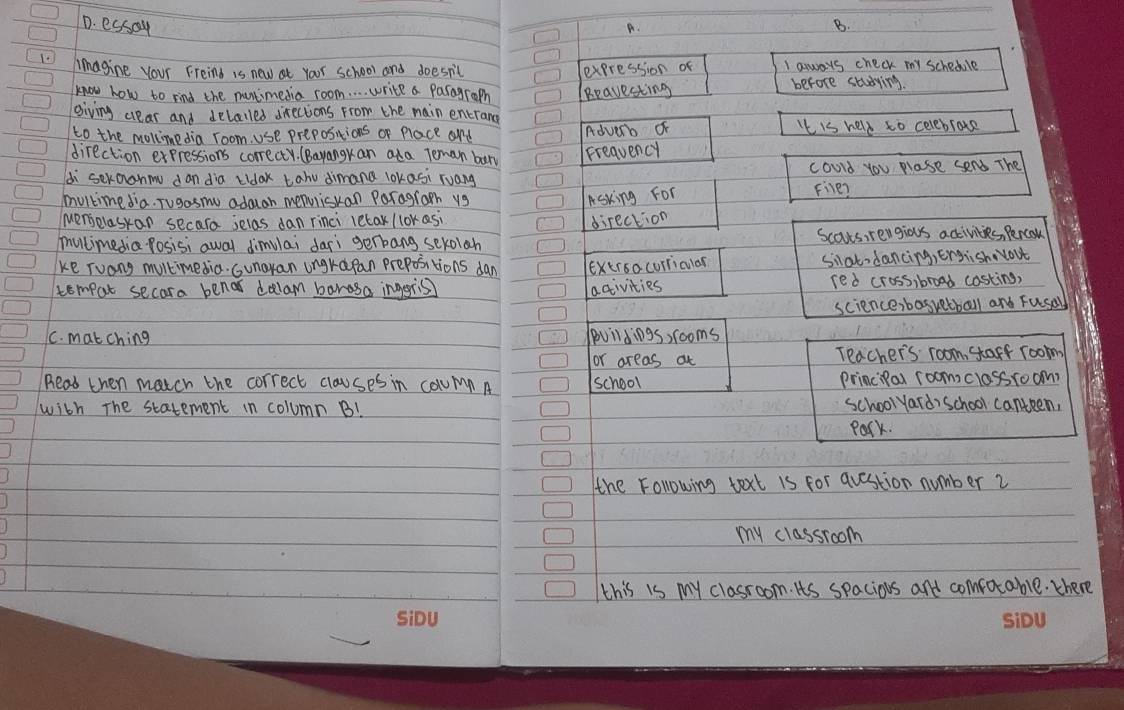 D. essay
1. imagine your Freind is new at your school and doesn't
know how to find the multimedia room .... write a paragraph
giving clear and detailed directions From the main entrance
to the moltimedia room. use prepositions of place and
direction expressions correctly. (Bayangkan ada Teman baru
di sekolahmu dan dia tidak tahu dimana lokasi ruang
multimedia. Tugasmu adalah menuliskan Paragraph yg
menjelaskan secara jelas dan rinci letak/lokasi
multimedia. Posisi awal dimulai dari gerbang sekolah
ke ruang multimedia. Gunakan ungkapan prepositions dan
tempat secara benar dalam bahasa inggris)
C. matching
Read then match the correct clauses in column A
with The statement in column B!
SiDU
A. B.
expression of
Reavesting
Adverb of
Freavency
Asking For
direction
Extrsacurricular
activities
Buildings, rooms
or areas at
school
I always check my schedule
before studying.
It is held to celebrate
could you plase send The
File?
Scouts, religious activities, Pencak
silat, dancing, English, Yout
red cross, broad casting,
science, basketball and Futsal
Teacher's room, staff room,
Principal room, classroom,
school yard, school canteen,
Park.
the Following text is for question number 2
my classroom
this is my clasroom. Its spacious and comfotable. there
SiDU